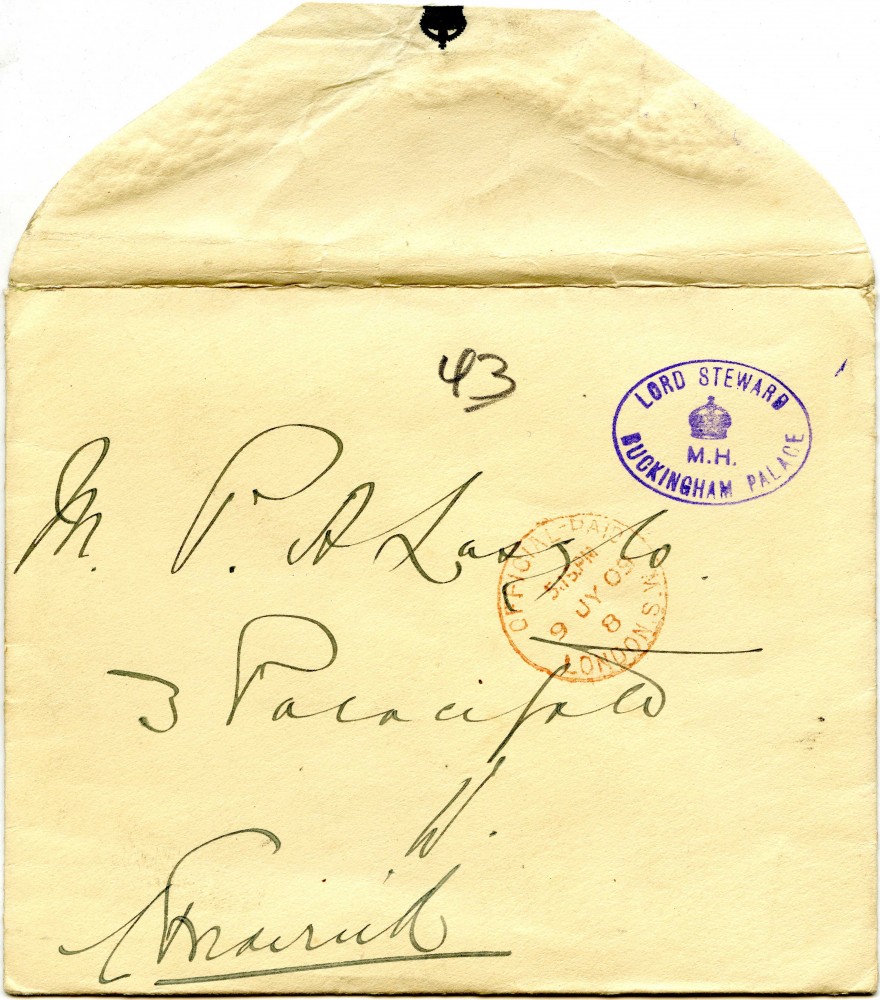 43
LORD STEWARD
M.H.
BUCKINGHAM PALACE
M. P. A Laszlo.
OFFICIAL-PAID
5.15.PM
9 JY 09
8
LONDON.S.W.
3 Palace Gate
W.
CFrederick